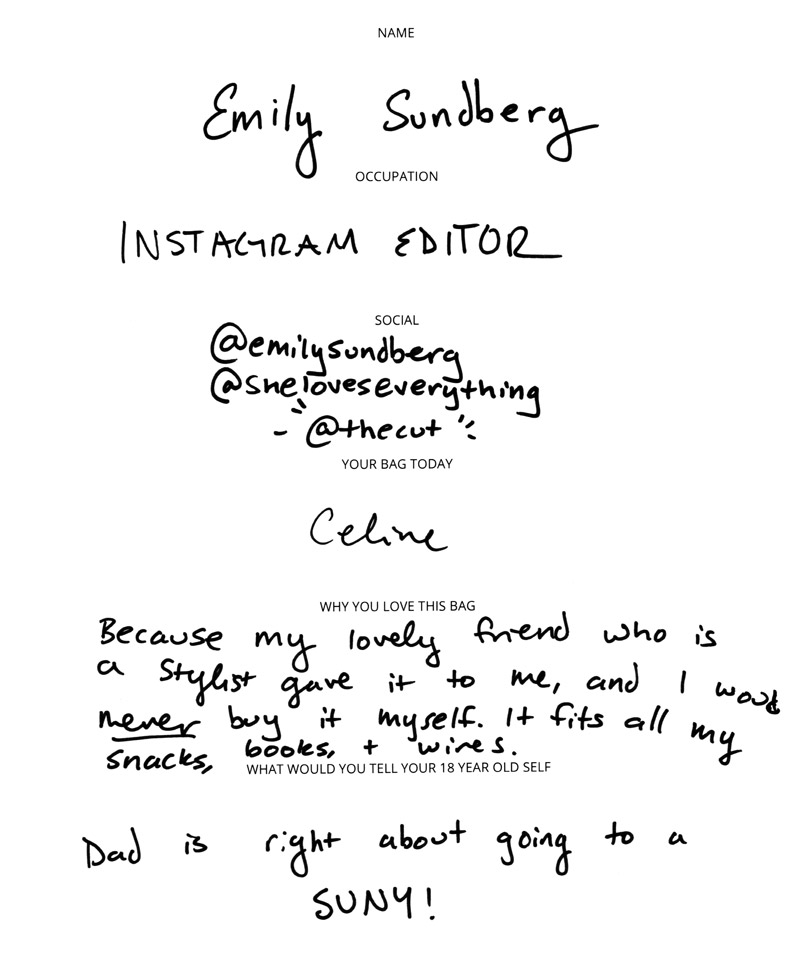 NAME
Emily Sundberg
OCCUPATION
INSTAGRAM EDITOR
SOCIAL
@emilysundberg
@sheloveseverything
- @thecut -
YOUR BAG TODAY
Celine
WHY YOU LOVE THIS BAG
Because my lovely friend who is
a stylist gave it to me, and I would
never buy it myself. It fits all my
snacks, books, + wires.
WHAT WOULD YOU TELL YOUR 18 YEAR OLD SELF
Dad is right about going to a
SUNY!